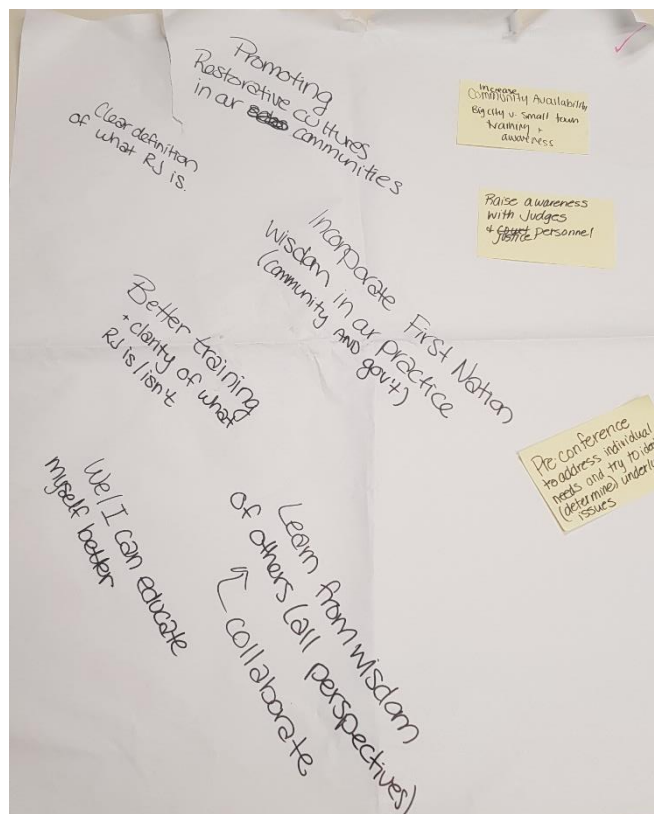 Promoting
Restorative cultures
in our communities
Clear definition
of what RJ is.
Incorporate First Nation
wisdom in our practice
(community AND gov't)
Better training
+ clarity of what
RJ is/isn't
We/I can educate
myself better
Learn from wisdom
of others (all perspectives)
collaborate
Increase
Community Availability
Big city v. small town
Naming +
awareness
Raise awareness
with Judges
+ justice personnel
Pre conference
to address individual
needs and try to
(determine) underl
issues